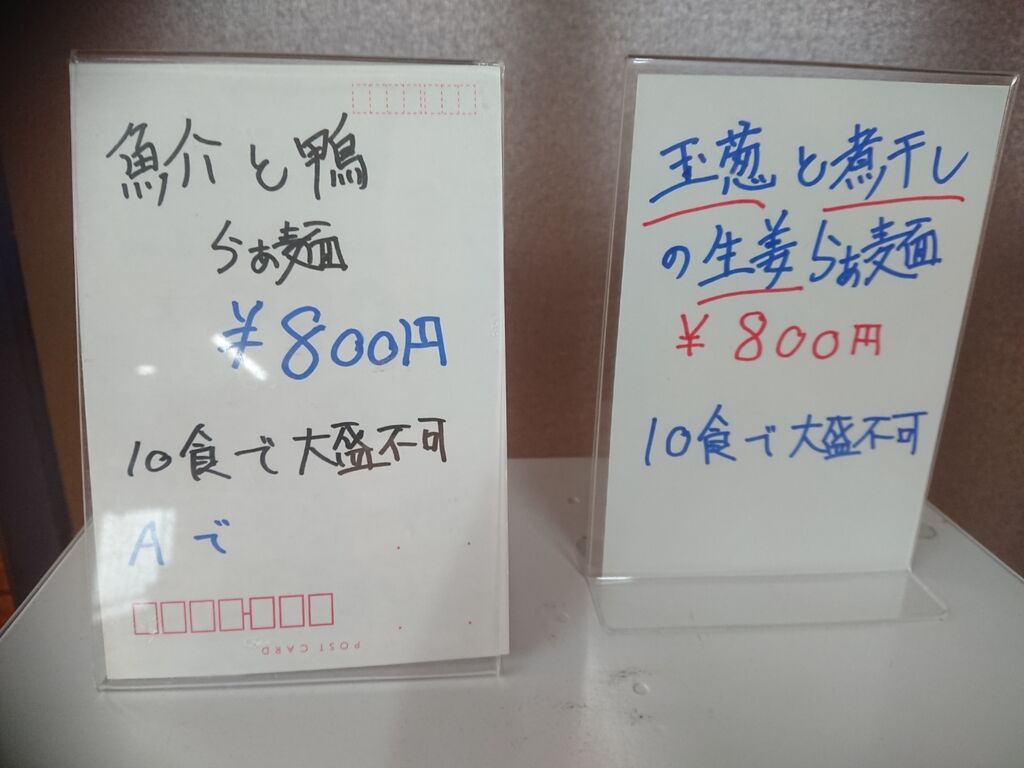 魚介と鴨
らぁ麺
¥800円
10食で大盛不可
Aで
POST CARD
玉葱と煮干し
の生姜らぁ麺
¥800円
10食で大盛不可